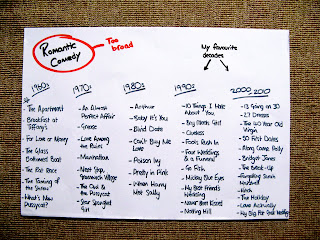 Romantic
Comedy
Too
broad
My favourite
decades
1960s
- The Apartment
- Breakfast at
Tiffany's
- For Love or Money
- The Glass
Bottomed Boat
- The Rat Race
- The Taming of
the Shrew
- What's New
Pussycat?
1970s
- An Almost
Perfect Affair
- Grease
- Love Among
the Ruins
- Manhattan
- Next Stop,
Greenwich Village
- The Owl & the
Pussycat
- Semi Tough
1980s
- Arthur
- Baby It's You
- Blind Date
- Can't Buy Me
Love
- Poison Ivy
- Pretty in Pink
- When Harry
Met Sally
1990s
- 10 Things I Hate
About You
- Boy Meets Girl
- Clueless
- Fools Rush In
- Four Weddings
& a Funeral
- Go Fish
- Mickey Blue Eyes
- My Best Friend's
Wedding
- Never Been Kissed
- Notting Hill
2000, 2010
- 13 Going on 30
- 27 Dresses
- The 40 Year Old
Virgin
- 50 First Dates
- Along Came Polly
- Bridget Jones
- The Break-Up
- Forgetting Sarah
Marshall
- Hitch
- The Holiday
- Love Actually
- My Big Fat Greek Wedding